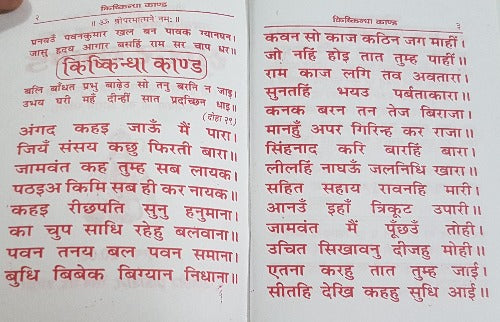 २
किष्किन्धा काण्ड
॥ ॐ श्रीपरमात्मने नमः ॥
प्रनवउँ पवनकुमार खल बन पावक ग्यानघन।
जासु हृदय आगार बसहिं राम सर चाप धर॥
किष्किन्धा काण्ड
बलि बाँधत प्रभु बाढ़ेउ सो तनु बरनि न जाइ।
उभय घरी महँ दीन्हीं सात प्रदच्छिन धाइ॥
(दोहा २९)
अंगद कहइ जाउँ मैं पारा।
जियँ संसय कछु फिरती बारा॥
जामवंत कह तुम्ह सब लायक।
पठइअ किमि सब ही कर नायक॥
कहइ रीछपति सुनु हनुमाना।
का चुप साधि रहेहु बलवाना॥
पवन तनय बल पवन समाना।
बुधि बिबेक बिग्यान निधाना॥
किष्किन्धा काण्ड
३
कवन सो काज कठिन जग माहीं।
जो नहिं होइ तात तुम्ह पाहीं॥
राम काज लगि तव अवतारा।
सुनतहिं भयउ पर्बताकारा॥
कनक बरन तन तेज बिराजा।
मानहुँ अपर गिरिन्ह कर राजा॥
सिंहनाद करि बारहिं बारा।
लीलहिं नाघउँ जलनिधि खारा॥
सहित सहाय रावनहि मारी।
आनउँ इहाँ त्रिकूट उपारी॥
जामवंत मैं पूँछउँ तोही।
उचित सिखावनु दीजहु मोही॥
एतना करहु तात तुम्ह जाई।
सीतहि देखि कहहु सुधि आई॥